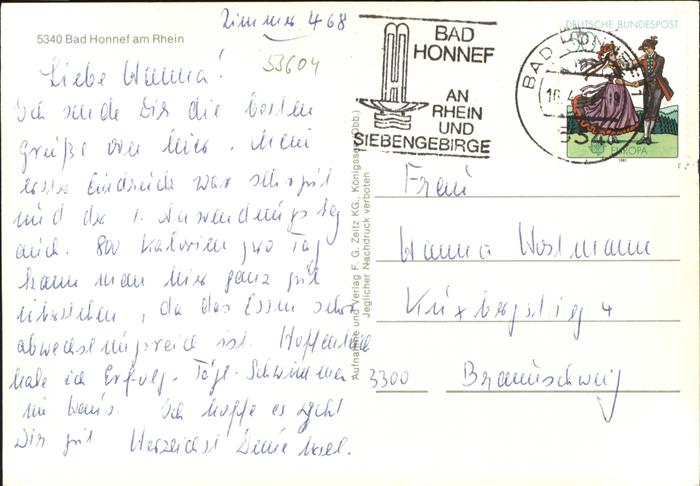 Zimmer 468
5340 Bad Honnef am Rhein
53604
Liebe Wanna!
Ich sende Dir die besten
Grüße von hier. Mein
erster Eindruck war sehr gut
und der 1. Anwendungstag
auch. 800 Kalorien pro Tag
kann man hier ganz gut
überstehen, da das Essen sehr
abwechslungsreich ist. Hoffentlich
habe ich Erfolg. Tägl. Schwimmen
Ich hoffe es geht
Dir gut Herzlichst Deine
BAD
HONNEF
AN
RHEIN
UND
SIEBENGEBIRGE
DEUTSCHE BUNDESPOST
BAD HONNEF 1
EUROPA
1981
Aufnahme und Verlag F. G. Zeitz KG., Königssee (Obb.)
Jeglicher Nachdruck verboten
Frau
Wanna Wortmann
4
3300 Braunschweig